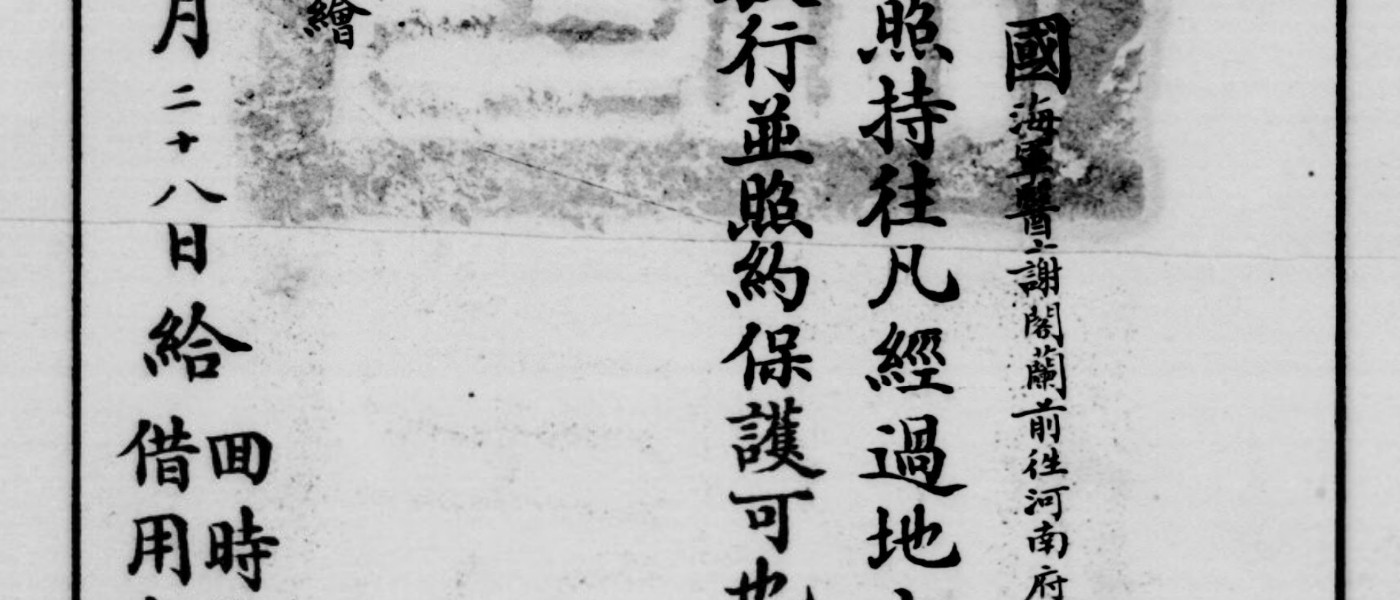 國海軍醫士謝閣蘭前往河南府
照持往凡經過地
行並照約保護可也
繪
月二十八日給
回時
借用